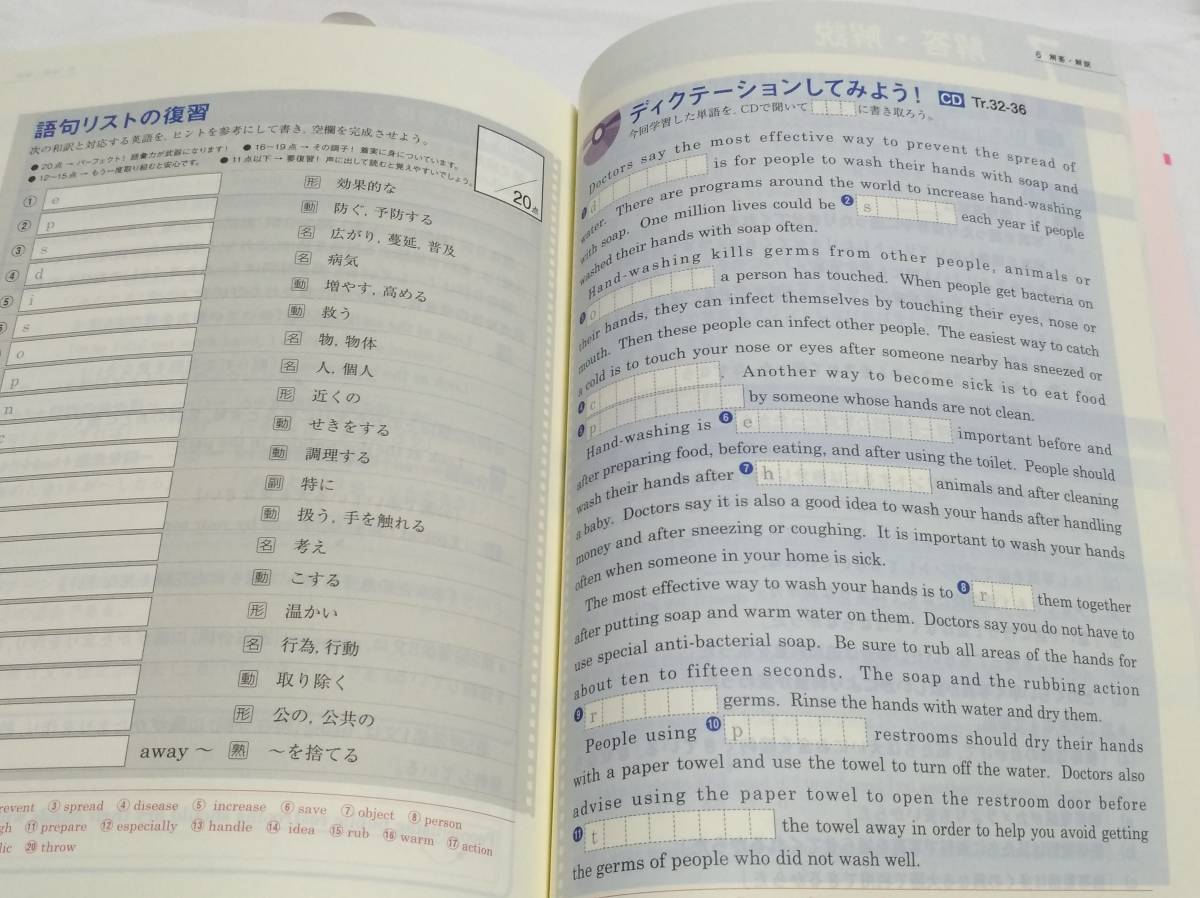 語句リストの復習
次の和訳と対応する英語を,ヒントを参考にして書き,空欄を完成させよう。
●20点→パーフェクト!語彙力が武器になります! ●16〜19点→その調子!着実に身についています。
●12〜15点→もう一度取り組むと安心です。 ●11点以下→要復習!声に出して読むと覚えやすいでしょう。
/20点
① e 形 効果的な
② p 動 防ぐ,予防する
③ s 名 広がり,蔓延,普及
④ d 名 病気
⑤ i 動 増やす,高める
s 動 救う
o 名 物,物体
p 名 人,個人
n 形 近くの
c 動 せきをする
動 調理する
副 特に
動 扱う,手を触れる
名 考え
動 こする
形 温かい
名 行為,行動
動 取り除く
形 公の,公共の
away〜 熟 〜を捨てる
revent ③ spread ④ disease ⑤ increase ⑥ save ⑦ object ⑧ person
gh ⑪ prepare ⑫ especially ⑬ handle ⑭ idea ⑮ rub ⑯ warm ⑰ action
lic ⑳ throw
6 解答・解説
ディクテーションしてみよう! CD Tr.32-36
今回学習した単語を,CDで聞いて に書き取ろう。
Doctors say the most effective way to prevent the spread of
❶ d is for people to wash their hands with soap and
water. There are programs around the world to increase hand-washing
with soap. One million lives could be ❷ s each year if people
washed their hands with soap often.
Hand-washing kills germs from other people, animals or
❸ o a person has touched. When people get bacteria on
their hands, they can infect themselves by touching their eyes, nose or
mouth. Then these people can infect other people. The easiest way to catch
a cold is to touch your nose or eyes after someone nearby has sneezed or
❹ c . Another way to become sick is to eat food
❺ p by someone whose hands are not clean.
Hand-washing is ❻ e important before and
after preparing food, before eating, and after using the toilet. People should
wash their hands after ❼ h animals and after cleaning
a baby. Doctors say it is also a good idea to wash your hands after handling
money and after sneezing or coughing. It is important to wash your hands
often when someone in your home is sick.
The most effective way to wash your hands is to ❽ r them together
after putting soap and warm water on them. Doctors say you do not have to
use special anti-bacterial soap. Be sure to rub all areas of the hands for
about ten to fifteen seconds. The soap and the rubbing action
❾ r germs. Rinse the hands with water and dry them.
People using ❿ p restrooms should dry their hands
with a paper towel and use the towel to turn off the water. Doctors also
advise using the paper towel to open the restroom door before
⓫ t the towel away in order to help you avoid getting
the germs of people who did not wash well.